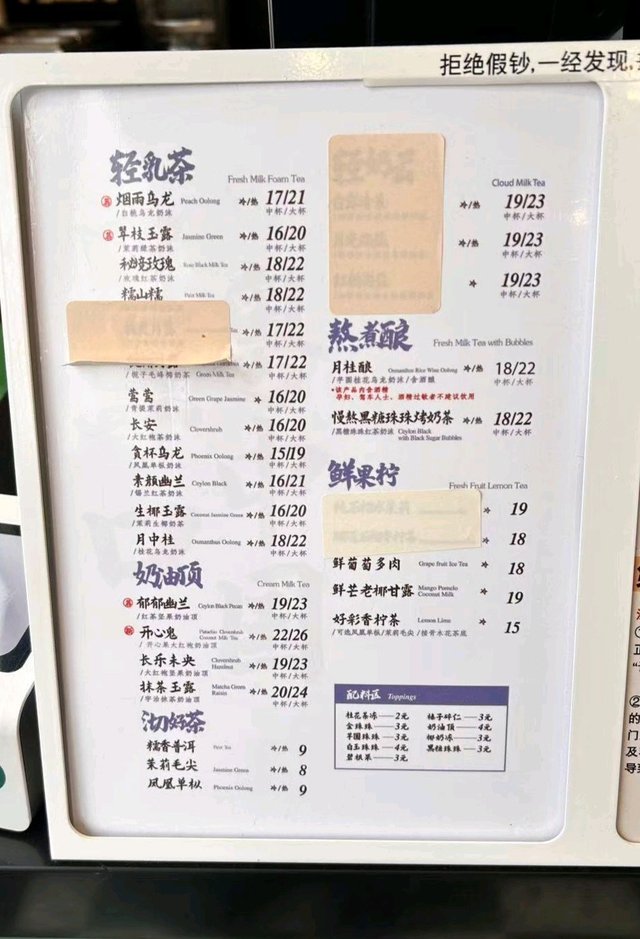 拒绝假钞,一经发现,
轻乳茶 Fresh Milk Foam Tea
烟雨乌龙 Peach Oolong 冷/热 17/21
/白桃乌龙奶沫 中杯/大杯
翠枝玉露 Jasmine Green 冷/热 16/20
/茉莉绿茶奶沫 中杯/大杯
秘境玫瑰 Rose Black Milk Tea 冷/热 18/22
/玫瑰红茶奶沫 中杯/大杯
糯山糯 Puer Milk Tea 冷/热 18/22
中杯/大杯
冷/热 17/22
中杯/大杯
冷/热 17/22
/栀子毛峰椰奶茶 Green Milk Tea 中杯/大杯
莺莺 Green Grape Jasmine 16/20
/青提茉莉奶沫 中杯/大杯
长安 Clovershrub 冷/热 16/20
/大红袍茶奶沫 中杯/大杯
贪杯乌龙 Phoenix Oolong 冷/热 15/19
/凤凰单枞奶沫 中杯/大杯
素颜幽兰 Ceylon Black 冷/热 16/21
/锡兰红茶奶沫 中杯/大杯
生椰玉露 Coconut Jasmine Green 冷/热 16/20
/茉莉生椰奶茶 中杯/大杯
月中桂 Osmanthus Oolong 冷/热 18/22
/桂花乌龙奶沫 中杯/大杯
奶油顶 Cream Milk Tea
郁郁幽兰 Ceylon Black Pecan 冷/热 19/23
/红茶坚果奶油顶 中杯/大杯
开心鬼 Pistachio Clovershrub Coconut Milk Tea 冷/热 22/26
/开心果大红袍奶油顶 中杯/大杯
长乐未央 Clovershrub Hazelnut 冷/热 19/23
/大红袍坚果奶油顶 中杯/大杯
抹茶玉露 Matcha Green Raisin 冷/热 20/24
/宇治抹茶奶油顶 中杯/大杯
沏好茶
糯香普洱 Puer Tea 冷/热 9
茉莉毛尖 Jasmine Green 冷/热 8
凤凰单枞 Phoenix Oolong 冷/热 9
Cloud Milk Tea
冷/热 19/23
中杯/大杯
冷/热 19/23
中杯/大杯
19/23
中杯/大杯
熬煮酿 Fresh Milk Tea with Bubbles
月桂酿 Osmanthus Rice Wine Oolong 冷/热 18/22
/芋圆桂花乌龙奶沫/含酒酿 中杯/大杯
*该产品内含酒精
孕妇、驾车人士、酒精过敏者不建议饮用
慢熬黑糖珠珠烤奶茶 冷/热 18/22
/黑糖珠珠红茶奶沫 Ceylon Black with Black Sugar Bubbles 中杯/大杯
鲜果柠 Fresh Fruit Lemon Tea
19
18
鲜萄萄多肉 Grape fruit Ice Tea 18
鲜芒老椰甘露 Mango Pomelo Coconut Milk 19
好彩香柠茶 Lemon Lime 15
/可选凤凰单枞/茉莉毛尖/接骨木花茶底
配料区 Toppings
桂花茶冻—2元 榛子碎仁—3元
金珠珠—3元 奶油顶—4元
芋圆珠珠—3元 椰奶冻—3元
白玉珠珠—4元 黑糖珠珠—3元
碧根果—3元